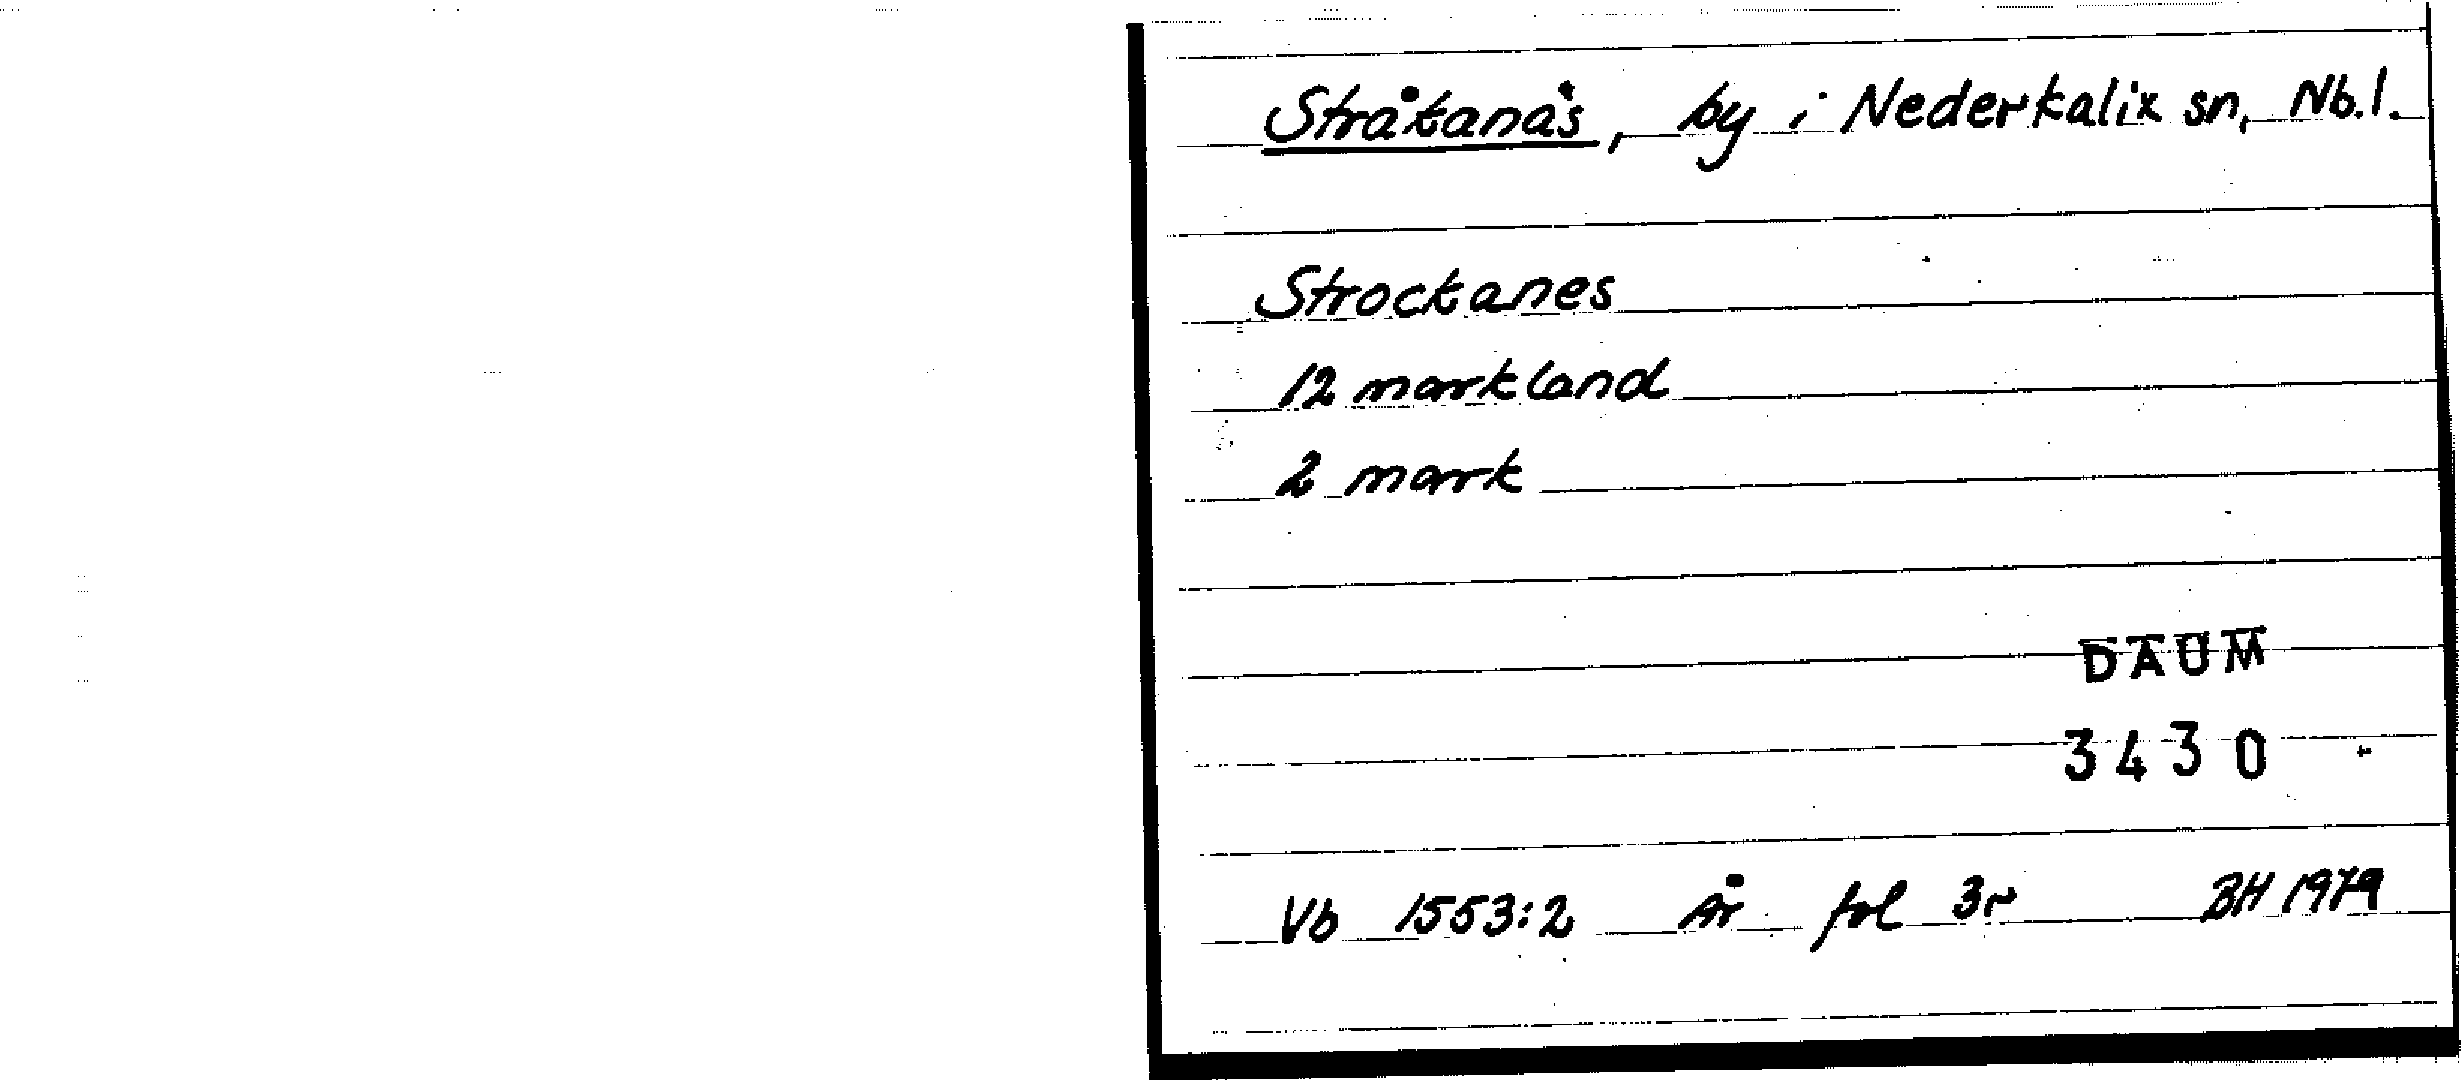 Stråkanäs, by i Nederkalix sn, Nb.l.
Strockanes
12 markland
2 mark
DAUM
3430
Vb 1553:2 år fol 3r BH 1979